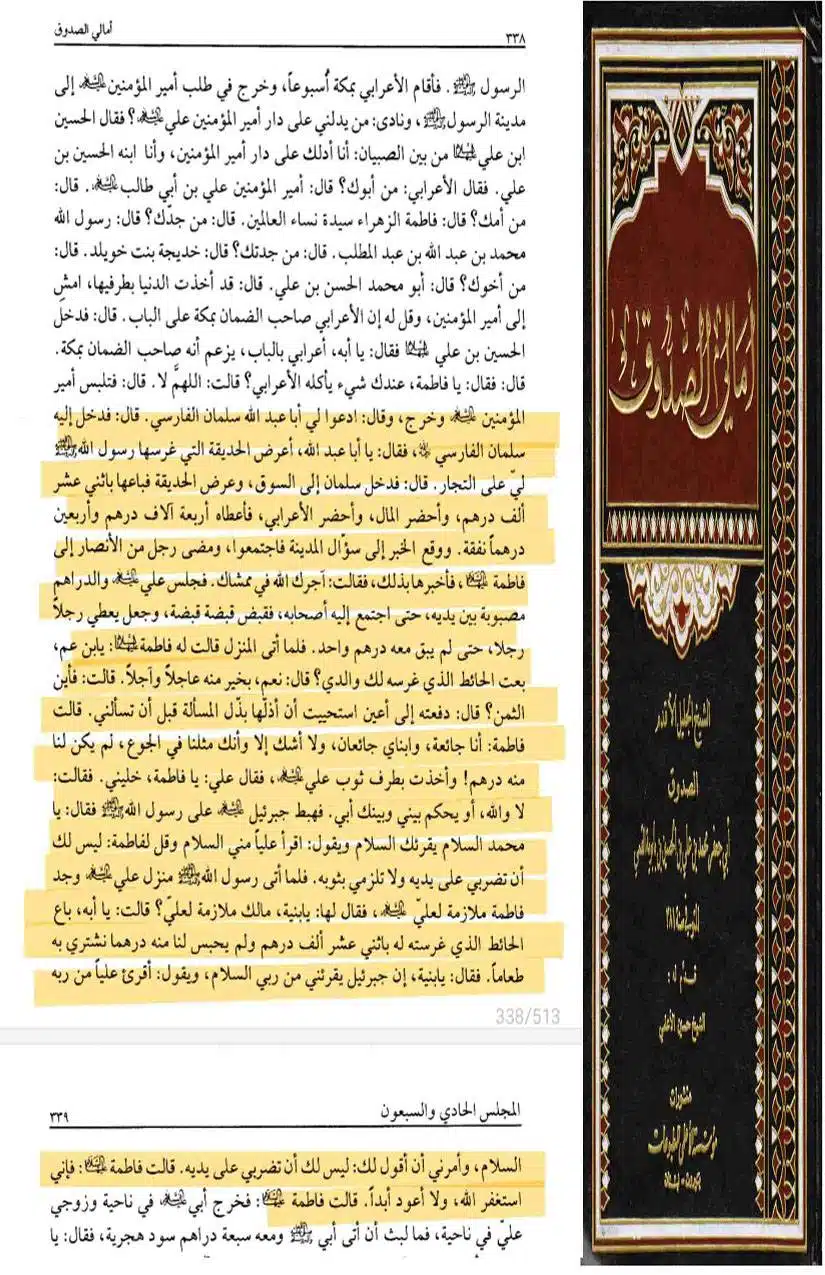 ٣٣٨
أمالي الصدوق
الرسول ﷺ. فأقام الأعرابي بمكة أُسبوعاً، وخرج في طلب أمير المؤمنين عليه السلام إلى
مدينة الرسول ﷺ، ونادى: من يدلني على دار أمير المؤمنين علي عليه السلام؟ فقال الحسين
ابن علي عليهما السلام من بين الصبيان: أنا أدلك على دار أمير المؤمنين، وأنا ابنه الحسين بن
علي. فقال الأعرابي: من أبوك؟ قال: أمير المؤمنين علي بن أبي طالب عليه السلام. قال:
من أمك؟ قال: فاطمة الزهراء سيدة نساء العالمين. قال: من جدّك؟ قال: رسول الله
محمد بن عبد الله بن عبد المطلب. قال: من جدتك؟ قال: خديجة بنت خويلد. قال:
من أخوك؟ قال: أبو محمد الحسن بن علي. قال: قد أخذت الدنيا بطرفيها، امشِ
إلى أمير المؤمنين، وقل له إن الأعرابي صاحب الضمان بمكة على الباب. قال: فدخل
الحسين بن علي عليهما السلام فقال: يا أبه، أعرابي بالباب، يزعم أنه صاحب الضمان بمكة.
قال: فقال: يا فاطمة، عندك شيء يأكله الأعرابي؟ قالت: اللهمَّ لا. قال: فتلبس أمير
المؤمنين عليه السلام وخرج، وقال: ادعوا لي أبا عبد الله سلمان الفارسي. قال: فدخل إليه
سلمان الفارسي، فقال: يا أبا عبد الله، أعرض الحديقة التي غرسها رسول الله ﷺ
ليّ على التجار. قال: فدخل سلمان إلى السوق، وعرض الحديقة فباعها باثني عشر
ألف درهم، وأحضر المال، وأحضر الأعرابي، فأعطاه أربعة آلاف درهم وأربعين
درهماً نفقة. ووقع الخبر إلى سؤّال المدينة فاجتمعوا، ومضى رجل من الأنصار إلى
فاطمة عليها السلام، فأخبرها بذلك، فقالت: آجرك الله في ممشاك. فجلس علي عليه السلام والدراهم
مصبوبة بين يديه، حتى اجتمع إليه أصحابه، فقبض قبضة قبضة، وجعل يعطي رجلاً
رجلا، حتى لم يبق معه درهم واحد. فلما أتى المنزل قالت له فاطمة عليها السلام: يابن عم،
بعت الحائط الذي غرسه لك والدي؟ قال: نعم، بخير منه عاجلاً وآجلاً. قالت: فأين
الثمن؟ قال: دفعته إلى أعين استحييت أن أذلّها بذّل المسألة قبل أن تسألني. قالت
فاطمة: أنا جائعة، وابناي جائعان، ولا أشك إلا وأنك مثلنا في الجوع، لم يكن لنا
منه درهم! وأخذت بطرف ثوب علي عليه السلام، فقال علي: يا فاطمة، خليني. فقالت:
لا والله، أو يحكم بيني وبينك أبي. فهبط جبرئيل عليه السلام على رسول الله ﷺ فقال: يا
محمد السلام يقرئك السلام ويقول: اقرأ علياً مني السلام وقل لفاطمة: ليس لك
أن تضربي على يديه ولا تلزمي بثوبه. فلما أتى رسول الله ﷺ منزل علي عليه السلام وجد
فاطمة ملازمة لعليّ عليه السلام، فقال لها: يابنية، مالك ملازمة لعليّ؟ قالت: يا أبه، باع
الحائط الذي غرسته له باثني عشر ألف درهم ولم يحبس لنا منه درهما نشتري به
طعاماً. فقال: يابنية، إن جبرئيل يقرئني من ربي السلام، ويقول: أقرئ علياً من ربه
338/513
المجلس الحادي والسبعون
٣٣٩
السلام، وأمرني أن أقول لك: ليس لك أن تضربي على يديه. قالت فاطمة عليها السلام: فإني
استغفر الله، ولا أعود أبداً. قالت فاطمة عليها السلام: فخرج أبي عليه السلام في ناحية وزوجي
عليّ في ناحية، فما لبث أن أتى أبي ﷺ ومعه سبعة دراهم سود هجرية، فقال: يا
أمالي الصدوق
الشيخ الجليل الأقدم
الصدوق
أبي جعفر محمد بن علي بن الحسين بن بابويه القمي
قدم له:
الشيخ حسين الأعلمي
منشورات
مؤسسة الأعلمي للمطبوعات
بيروت - لبنان